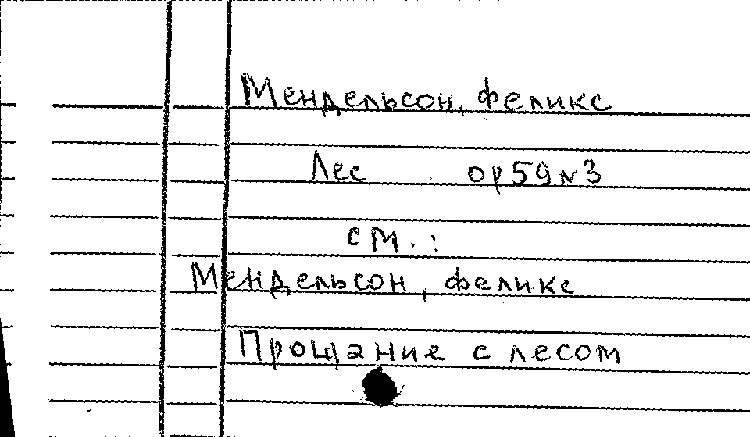 Мендельсон, феликс
Лес op 59 N 3
см.:
Мендельсон, феликс
Прощание с лесом